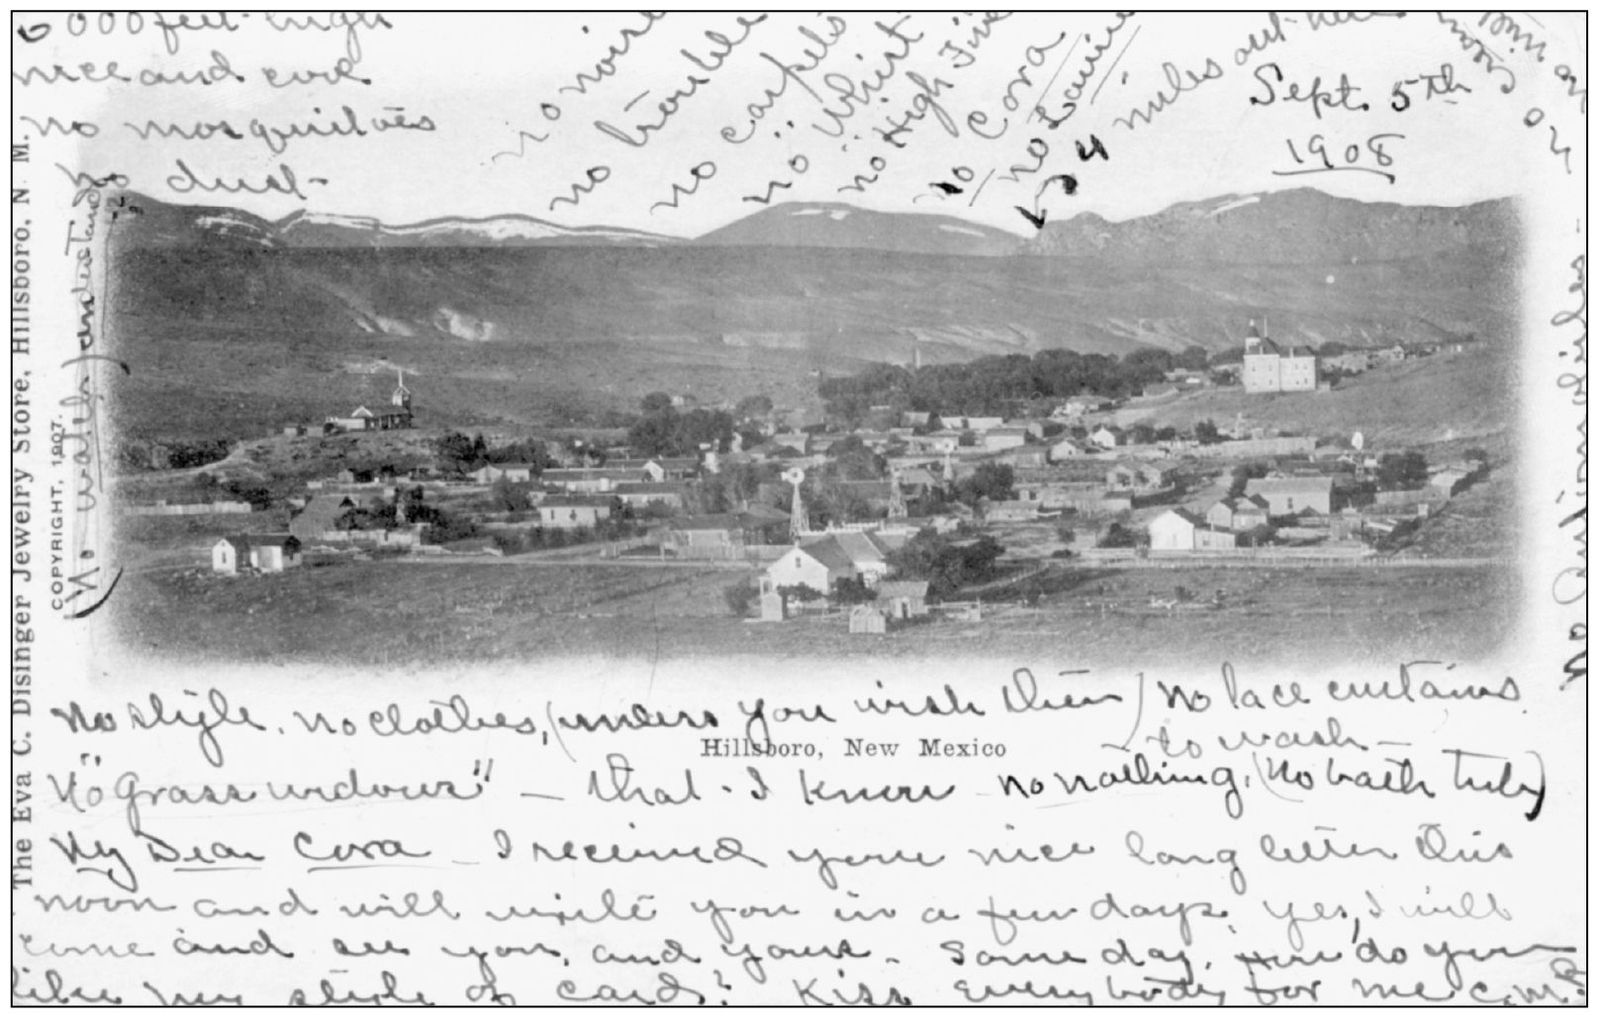 6000 feet high
nice and cool
no mosquitoes
no dust
no noise
no trouble
no carpets
no "Whist"
no High Five
no Cora
no
24 miles out here
Sept. 5th
1908
no automobiles -
(No water) understand
The Eva C. Disinger Jewelry Store, Hillsboro, N. M.
COPYRIGHT, 1907.
No style. no clothes, (unless you wish them) No lace curtains
to wash -
Hillsboro, New Mexico
No "Grass widows" - that I know no nothing. (No bath tub)
My Dear Cora - I received your nice long letter this
noon and will write you in a few days. yes, I will
come and see you, and yours - some day. How do you
like my style of card? Kiss everybody for me C.M.